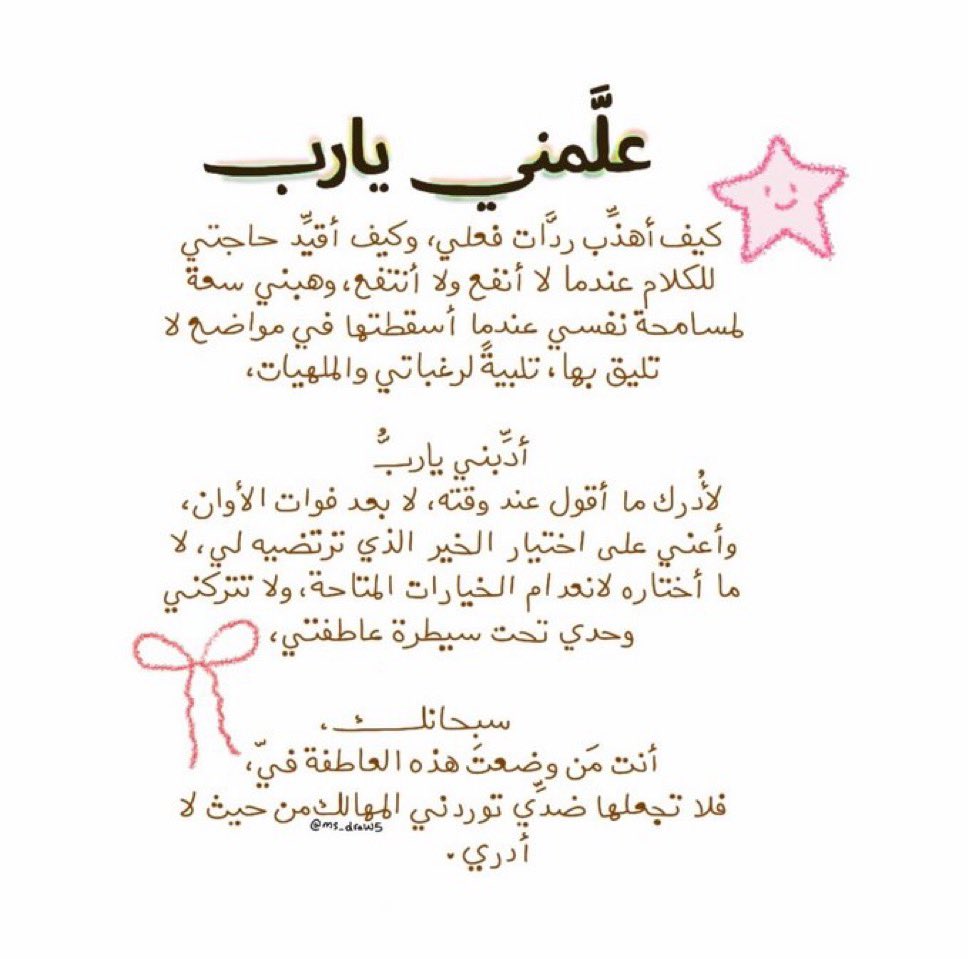 علَّمني يارب
كيف أهذِّب ردَّات فعلي، وكيف أقيِّد حاجتي
للكلام عندما لا أنفع ولا أنتفع، وهبني سعة
لمسامحة نفسي عندما أسقطتها في مواضع لا
تليق بها، تلبيةً لرغباتي والملهيات،
أدِّبني ياربُّ
لأُدرك ما أقول عند وقته، لا بعد فوات الأوان،
وأعني على اختيار الخير الذي ترتضيه لي، لا
ما أختاره لانعدام الخيارات المتاحة، ولا تتركني
وحدي تحت سيطرة عاطفتي،
سبحانك،
أنت مَن وضعتَ هذه العاطفة فيّ،
فلا تجعلها ضدِّي توردني المهالك من حيث لا
@ms_draw5
أدري.